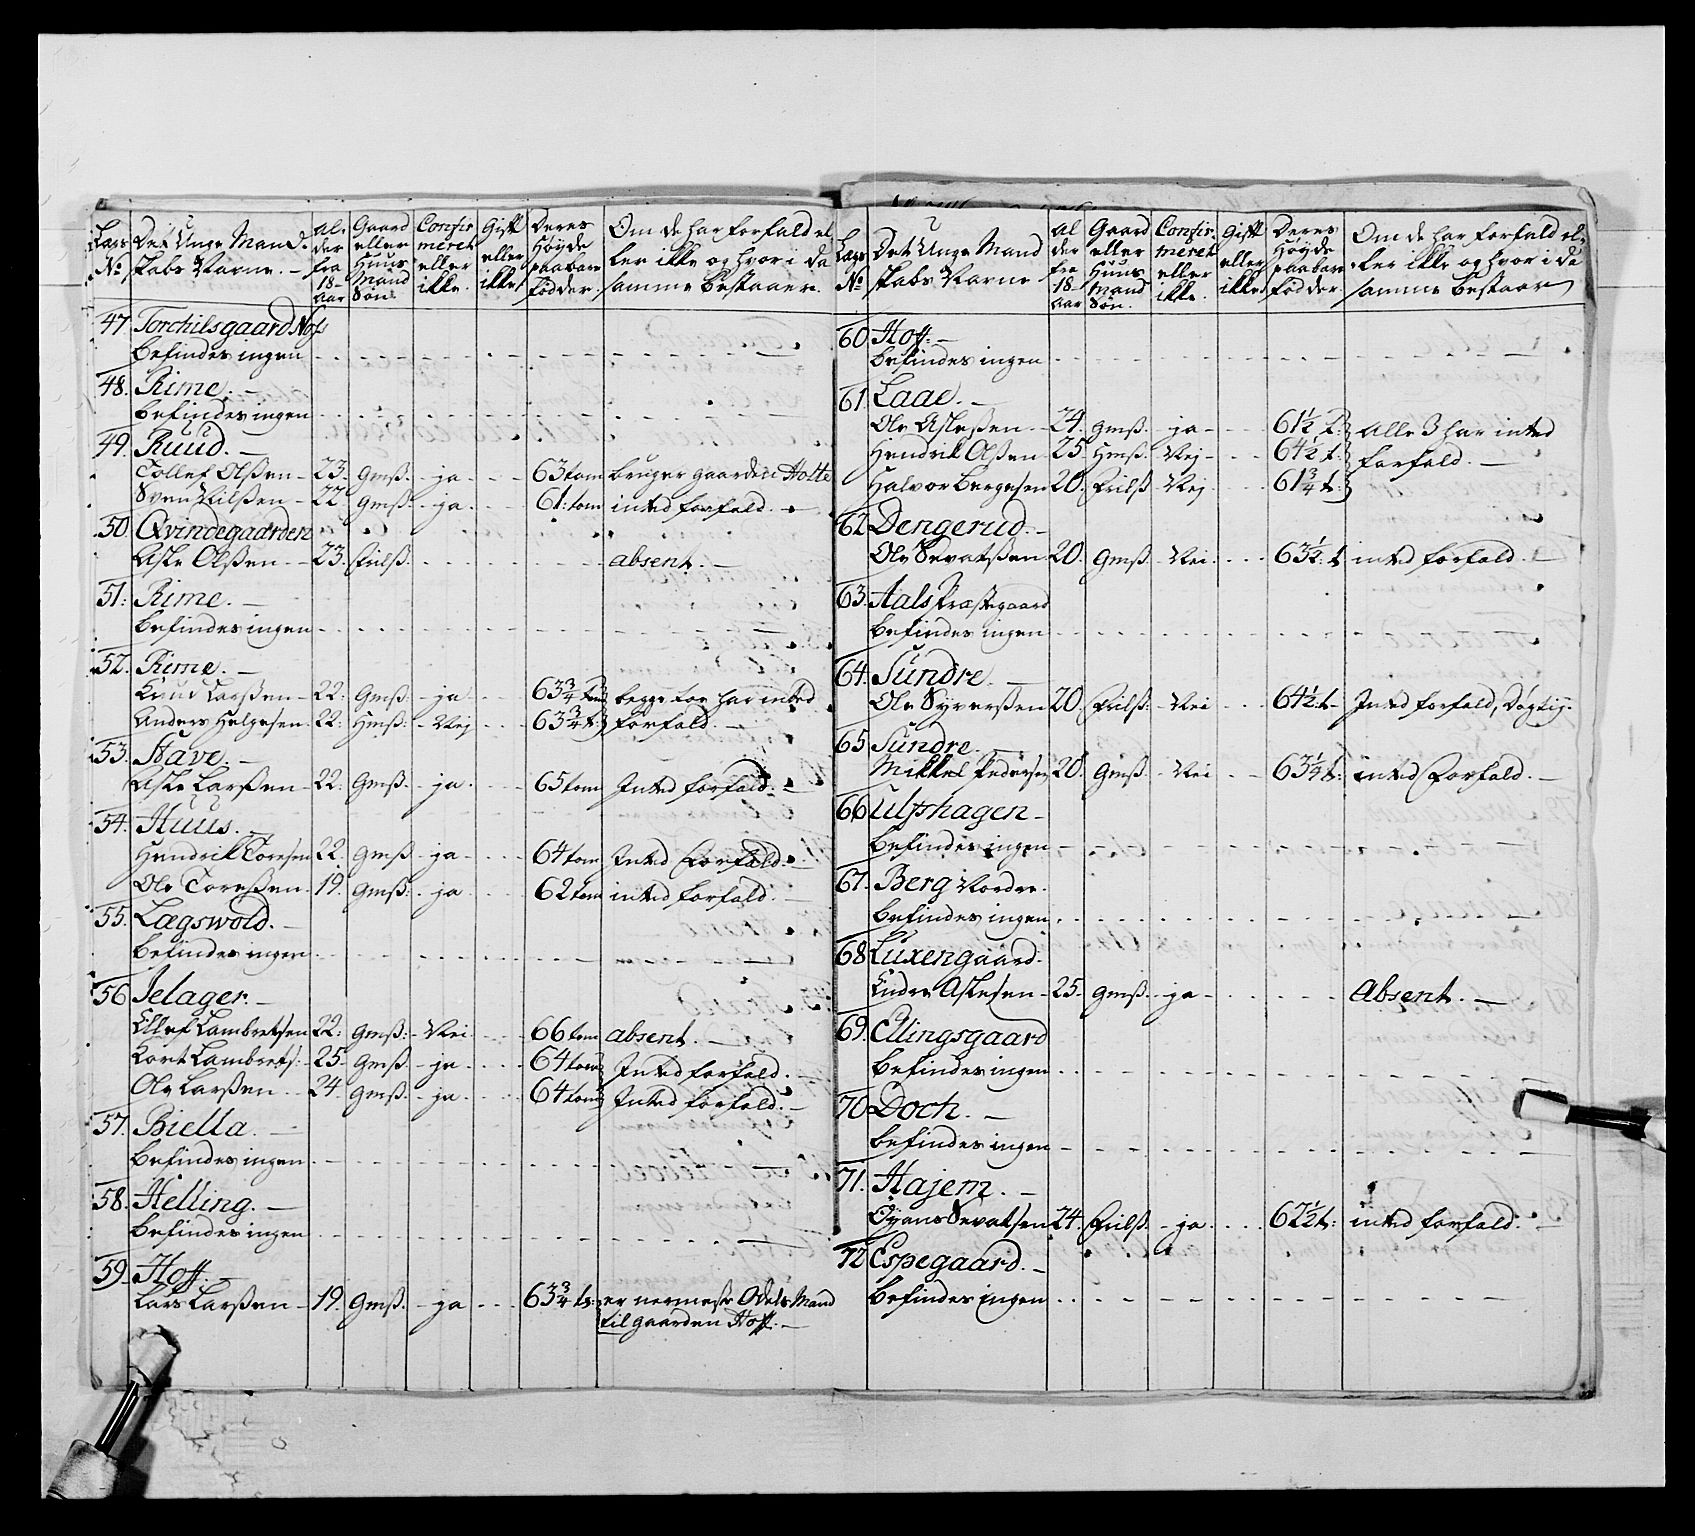 Lægs No | Det Unge Mand- skabs Navne. | al- der fra 18 aar | Gaard eller Huus Mand Søn. | Confir- meret eller ikke. | Gift eller ikke | Deres Høyde paa bare fødder. | Om de har forfald el- ler ikke og hvori de samme bestaaer.
47. Torchilsgaard Nofs
befindes ingen
48. Rime.
befindes ingen
49. Ruud.
Tollef Olßen 23. Gmß. ja 63 tom bruger gaarden Holte
Svend Nilßen 22 Gmß. ja 61. tom inted forfald.
50. Qvindegaarden
Asle Olßen 23. Friilß. absent.
51. Rime.
befindes ingen
52. Rime.
Knud Larßen 22. Gmß. ja 63 3/4 tom begge too har inted
Anders Helgesen 22. Hmß. Nej 63 3/4 t. forfald.
53. Have.
Asle Larßen 22. Gmß. ja 65 tom Inted forfald.
54. Huus.
Hendrik Toresen 22. Gmß ja 64 tom Inted Forfald.
Ole Toreßen 19. Gmß. ja 62 tom inted forfald.
55. Lægswold.
befindes ingen
56 Jelager.
Ellef Lambretsen 22. Gmß. Nei 66 tom absent.
Kort Lambrets: 25. Gmß. ja 64 tom Inted forfald.
Ole Larßen 24. Gmß. ja 64 tom Inted forfald.
57. Biella.
befindes ingen
58. Helling.
befindes ingen
59. Hoff.
Lars Larßen 19. Gmß. ja 63 3/4 t: er nermeste Odels Mand
til gaarden Hoff.
Lægs No | Det Unge Mand skabs Navne | al der fra 18. aar | Gaard eller Huus Mand Søn. | Confir- meret eller ikke. | gift eller ikke | Deres Høyde paa bare fødder. | Om de har forfald el- ler ikke og hvori de samme bestaar
60 Hoff.
befindes ingen
61 Laae.
Ole Asleßen 24. Gmß. ja 61 1/2 t. alle 3 har inted
Hendrik Olßen 25. Hmß. Nej 64 1/2 t. forfald.
Halvor Bergesen 20. Friilß Nej 61 3/4 t.
62 Dengerud.
Ole Sevatßen 20. Gmß. Nei 63 1/4 t inted forfald.
63. Aals Præstegaard
befindes ingen
64. Sundre.
Ole Syverßen 20. Friilß. Nei 64 1/2 t Inted forfald, Døgtig.
65 Sundre.
Mikkel Pedersen 20. Gmß. Nei 63 1/4 t. inted Forfald.
66 Ulfshagen
befindes ingen
67. Berg Nordre.
befindes ingen
68 Luxengaard.
Endre Aslesen 25. Gmß. ja Absent.
69. Elingsgaard
befindes ingen
70 Doch.
befindes ingen
71. Hajem.
Øyans Sevatsen 24. Friilß. ja 62 1/2 t: inted forfald.
72 Espegaard.
befindes ingen